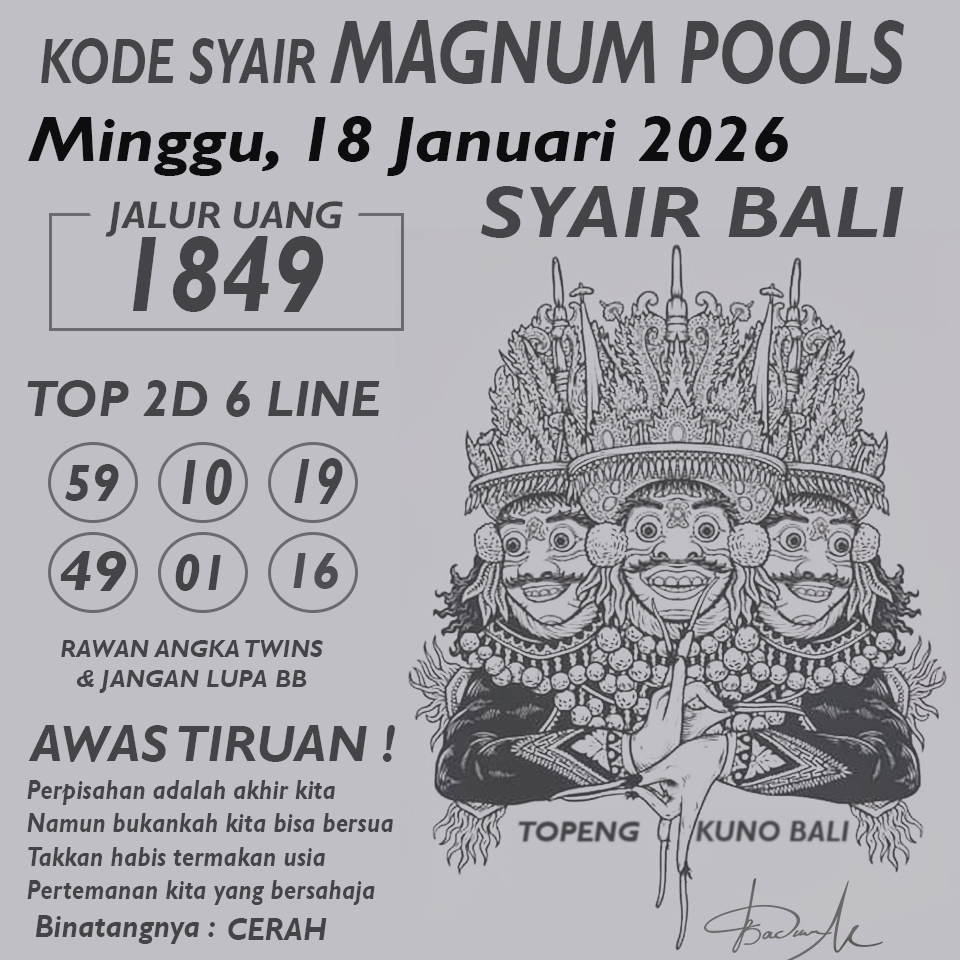 KODE SYAIR MAGNUM POOLS
Minggu, 18 Januari 2026
SYAIR BALI
JALUR UANG
1849
TOP 2D 6 LINE
59 10 19
49 01 16
RAWAN ANGKA TWINS
& JANGAN LUPA BB
AWAS TIRUAN !
Perpisahan adalah akhir kita
Namun bukankah kita bisa bersua
Takkan habis termakan usia
Pertemanan kita yang bersahaja
Binatangnya : CERAH
TOPENG KUNO BALI